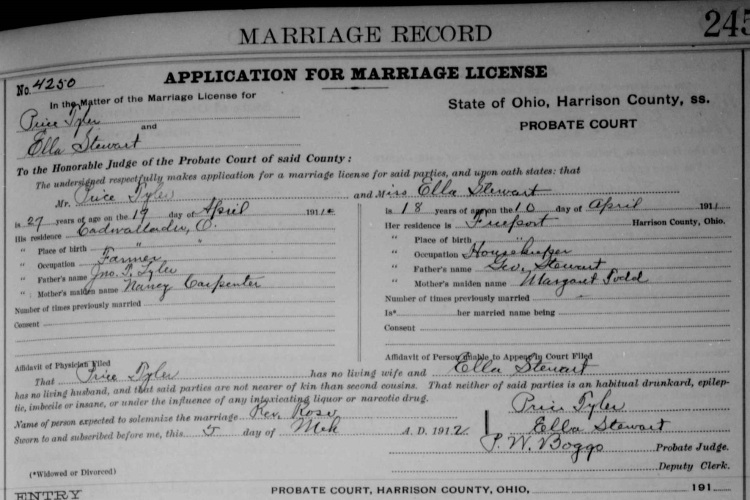 MARRIAGE RECORD 245
No. 4250
APPLICATION FOR MARRIAGE LICENSE
In the Matter of the Marriage License for
Price Tyler
and
Ella Stewart
State of Ohio, Harrison County, ss.
PROBATE COURT
To the Honorable Judge of the Probate Court of said County:
The undersigned respectfully makes application for a marriage license for said parties, and upon oath states: that
Mr. Price Tyler and Miss Ella Stewart
is 27 years of age on the 19 day of April 191
His residence Cadwallader, O.
" Place of birth " "
" Occupation Farmer
" Father's name Jno. P. Tyler
" Mother's maiden name Nancy Carpenter
Number of times previously married
Consent
is 18 years of age on the 10 day of April 1911
Her residence is Freeport Harrison County, Ohio.
" Place of birth "
" Occupation Housekeeper
" Father's name Geo. Stewart
" Mother's maiden name Margaret Todd
Number of times previously married
Is* her married name being
Consent
Affidavit of Physician Filed
Affidavit of Person unable to Appear in Court Filed
That Price Tyler has no living wife and Ella Stewart
has no living husband, and that said parties are not nearer of kin than second cousins. That neither of said parties is an habitual drunkard, epilep-
tic, imbecile or insane, or under the influence of any intoxicating liquor or narcotic drug.
Name of person expected to solemnize the marriage Rev. Rose
Price Tyler
Ella Stewart
Sworn to and subscribed before me, this 5 day of Mch A. D. 1912
P. W. Boggs Probate Judge.
Deputy Clerk.
(*Widowed or Divorced)
ENTRY PROBATE COURT, HARRISON COUNTY, OHIO, 191